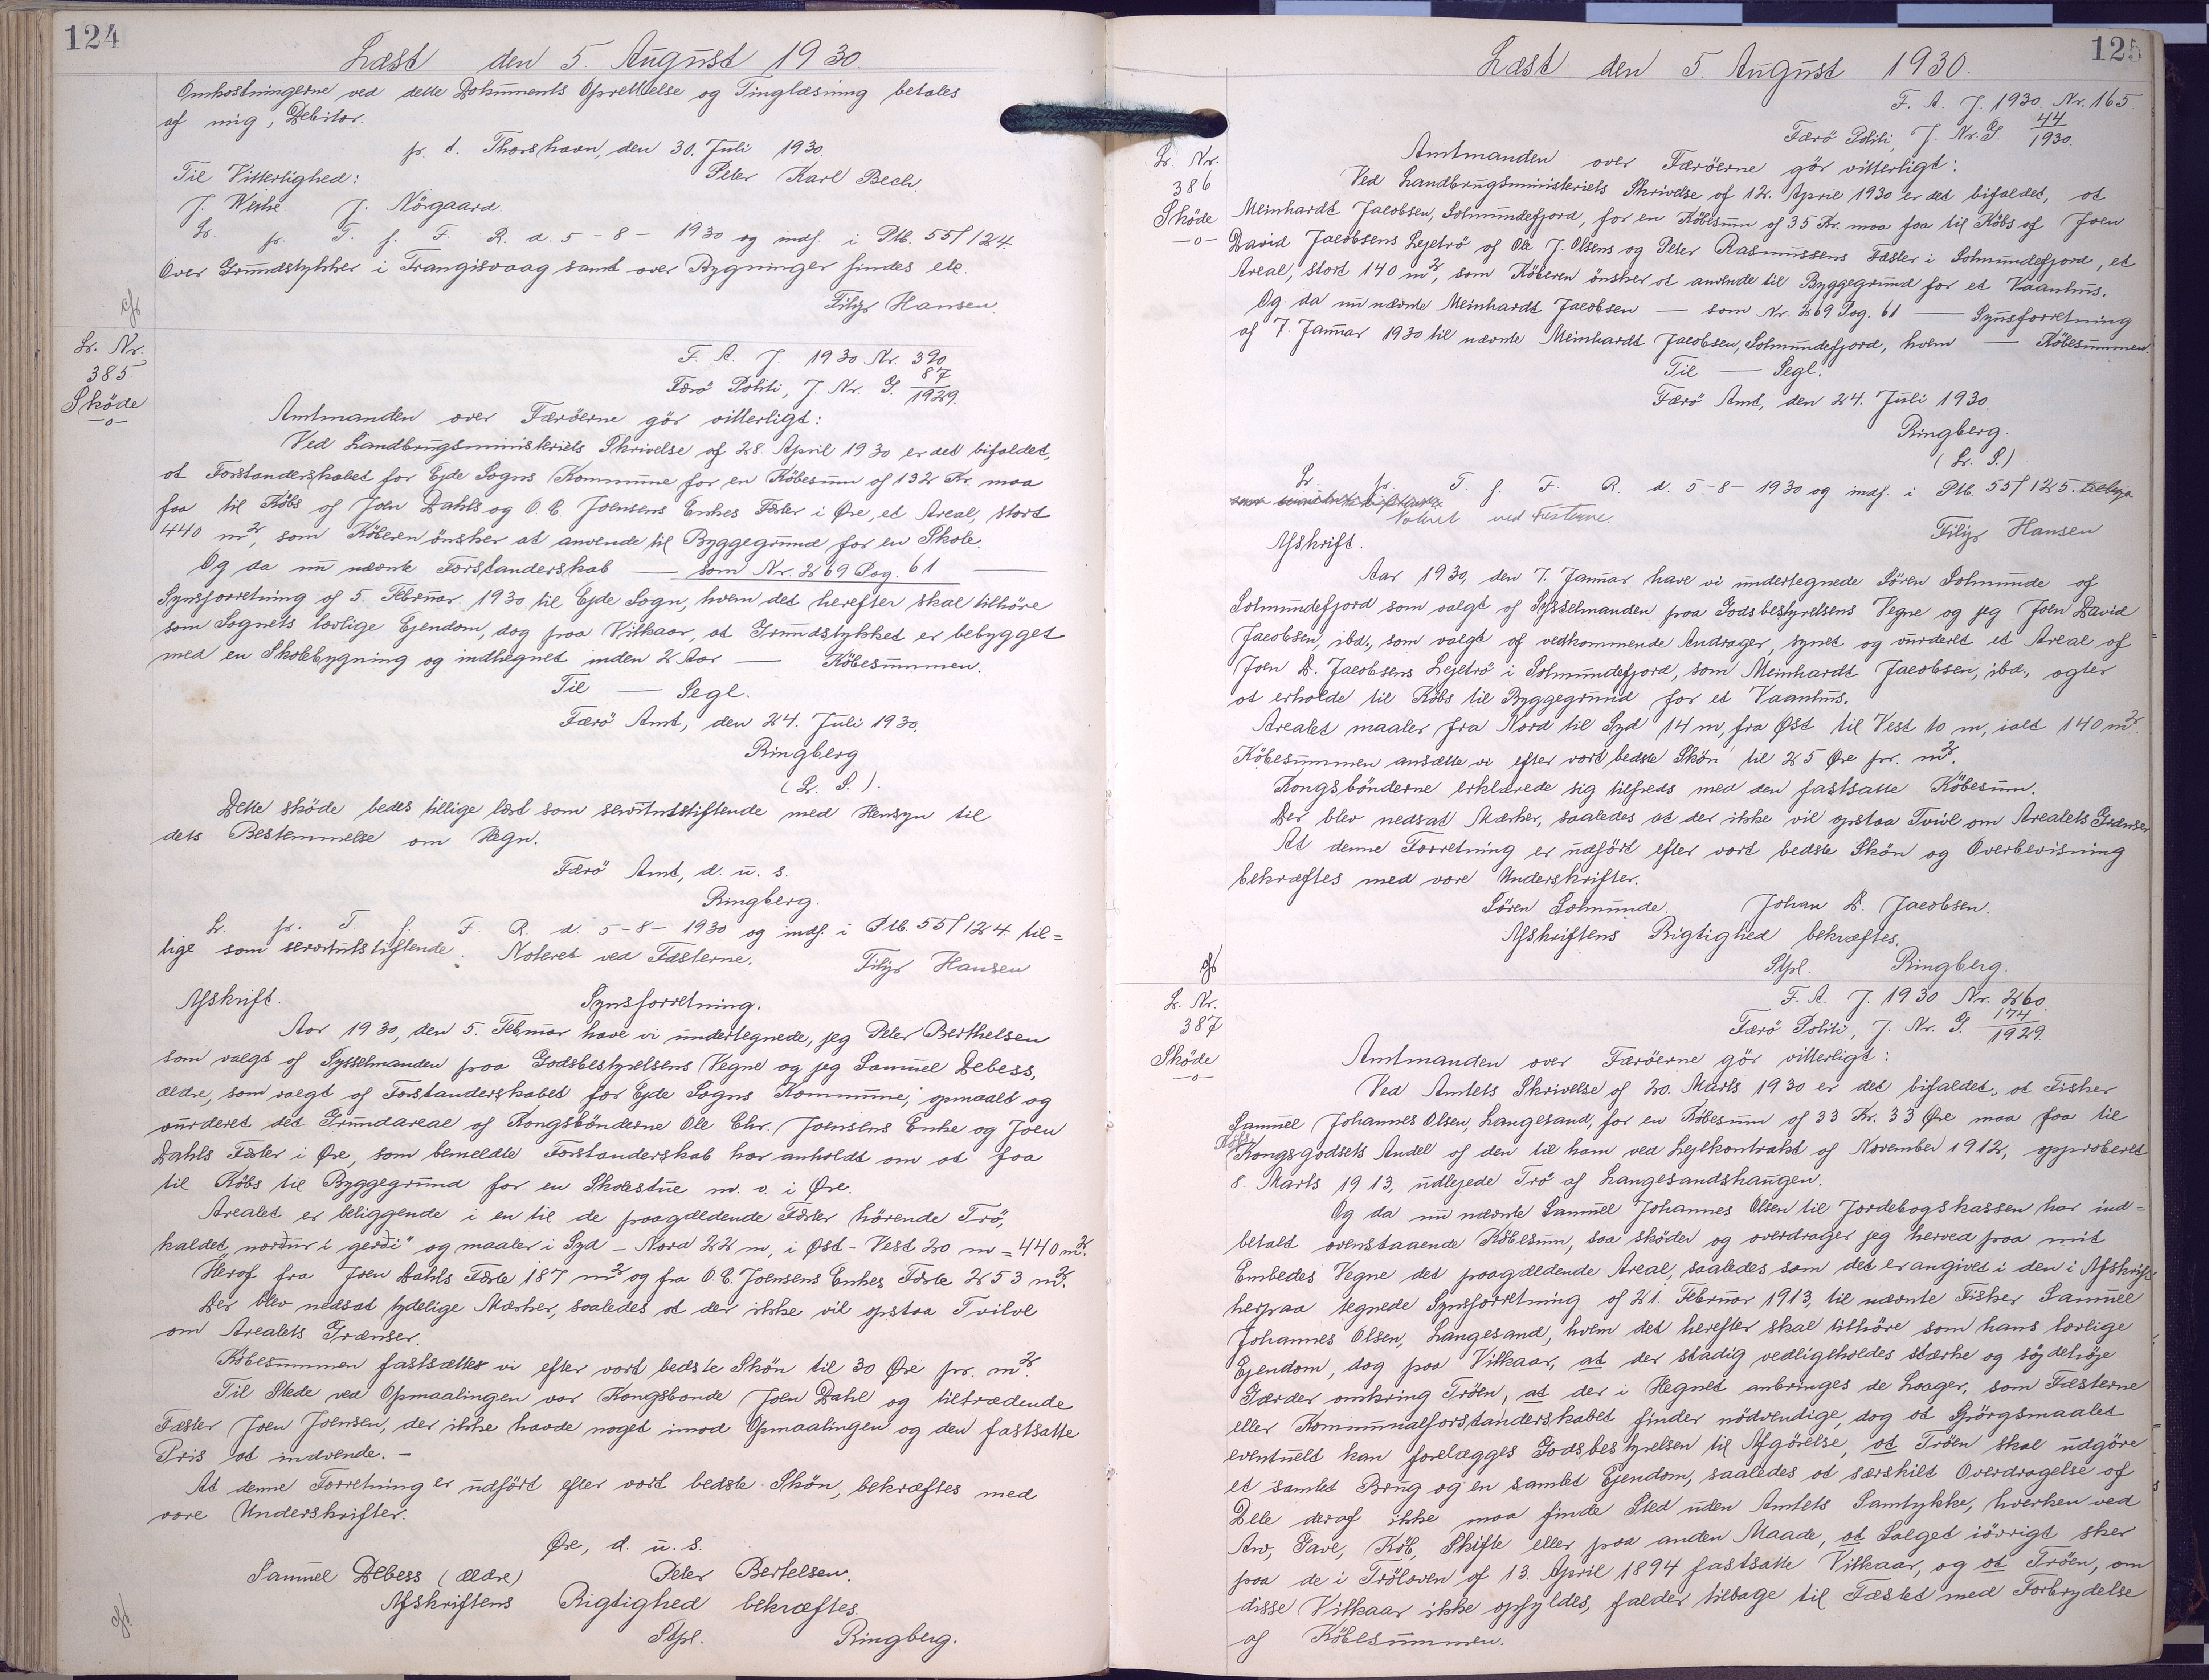 124
Læst den 5. August 1930.
Omkostningerne ved dette Dokuments Oprettelse og Tinglæsning betales
af mig, Debitor.
p. t. Thorshavn, den 30. Juli 1930.
Til Vitterlighed: Peter Karl Bech.
J. Weihe. J. Nörgaard.
Lr. pr. T. f. F. R. d. 5-8-1930 og indf. i Ptb. 55/124.
Over Grundstykker i Trangisvaag samt over Bygninger findes etc.
Filip Hansen.
Lr. Nr.
385
Sköde
-o-
F. A. J 1930 Nr. 390
Færö Politi, J. Nr. G. 87/1929.
Amtmanden over Færöerne gör vitterligt:
Ved Landbrugsministeriets Skrivelse af 28. April 1930 er det bifaldet,
at Forstanderskabet for Ejde Sogns Kommune for en Köbesum af 132 Kr. maa
faa til Köbs af Joen Dahls og O. C. Joensens Enkes Fæster i Øre, et Areal, stort
440 m², som Köberen önsker at anvende til Byggegrund for en Skole.
Og da nu nævnte Forstanderskab — som Nr. 269 Pag. 61 —
Synsforretning af 5. Februar 1930 til Ejde Sogn, hvem det herefter skal tilhöre
som Sognets lovlige Ejendom, dog paa Vilkaar, at Grundstykket er bebygget
med en Skolebygning og indhegnet inden 2 Aar — Köbesummen.
Til — Segl.
Færö Amt, den 24. Juli 1930.
Ringberg
(L. S.).
Dette sköde bedes tillige læst som servitutstiftende med Hensyn til
dets Bestemmelse om Hegn.
Færö Amt, d. u. s.
Ringberg.
L. pr. T. f. F. R. d. 5-8-1930 og indf. i Ptb. 55/124 til=
lige som servitutstiftende. Noteret ved Fæsterne. Filip Hansen
Afskrift. Synsforretning.
Aar 1930, den 5. Februar have vi undertegnede, jeg Peter Berthelsen
som valgt af Sysselmanden paa Godsbestyrelsens Vegne og jeg Samuel Debess,
ældre, som valgt af Forstanderskabet for Ejde Sogns Kommune, opmaalt og
vurderet det Grundareal af Kongsbönderne Ole Chr. Joensens Enke og Joen
Dahls Fæster i Øre, som bemeldte Forstanderskab har anholdt om at faa
til Köbs til Byggegrund for en Skolestue m. v. i Øre.
Arealet er beliggende i en til de paagældende Fæster hörende Trö,
kaldet „norður i gerði" og maaler i Syd - Nord 22 m, i Øst - Vest 20 m = 440 m².
Heraf fra Joen Dahls Fæste 187 m² og fra O. C. Joensens Enkes Fæste 253 m².
Der blev nedsat tydelige Mærker, saaledes at der ikke vil opstaa Tvivl
om Arealets Grænser.
Köbesummen fastsættes vi efter vort bedste Skön til 30 Øre pr. m².
Til Stede ved Opmaalingen var Kongsbonde Joen Dahl og tiltrædende
Fæster Joen Joensen, der ikke havde noget imod Opmaalingen og den fastsatte
Pris at indvende. -
At denne Forretning er udfört efter vort bedste Skön, bekræftes med
vore Underskrifter.
Øre, d. u. s.
Samuel Debess (ældre) Peter Bertelsen.
Afskriftens Rigtighed bekræftes.
Stpl. Ringberg.
125
Læst den 5. August 1930.
F. A. J. 1930. Nr. 165.
Færö Politi, J. Nr. G. 44/1930.
Lr. Nr.
386
Sköde
-o-
Amtmanden over Færöerne gör vitterligt:
Ved Landbrugsministeriets Skrivelse af 12. April 1930 er det bifaldet, at
Meinhardt Jacobsen, Solmundefjord, for en Köbesum af 35 Kr. maa faa til Köbs af Joen
David Jacobsens Lejetrö af Ole J. Olsens og Peter Rasmussens Fæster i Solmundefjord, et
Areal, stort 140 m², som Köberen önsker at anvende til Byggegrund for et Vaanhus.
Og da nu nævnte Meinhardt Jacobsen — som Nr. 269 Pag. 61 — Synsforretning
af 7. Januar 1930 til nævnte Meinhardt Jacobsen, Solmundefjord, hvem — Köbesummen.
Til — Segl.
Færö Amt, den 24. Juli 1930.
Ringberg.
(L. S.)
Lr. pr. T. f. F. R. d. 5-8-1930 og indf. i Ptb. 55/125.
Noteret ved Fæsterne.
Filip Hansen
Afskrift.
Aar 1930, den 7. Januar have vi undertegnede Sören Solmunde af
Solmundefjord som valgt af Sysselmanden paa Godsbestyrelsens Vegne og jeg Joen David
Jacobsen, ibd., som valgt af vedkommende Andrager, synet og vurderet et Areal af
Joen D. Jacobsens Lejetrö i Solmundefjord, som Meinhardt Jacobsen, ibd., agter
at erholde til Köbs til Byggegrund for et Vaanhus.
Arealet maaler fra Nord til Syd 14 m, fra Øst til Vest 10 m, ialt 140 m².
Köbesummen ansætte vi efter vort bedste Skön til 25 Øre pr. m².
Kongsbönderne erklærede sig tilfreds med den fastsatte Köbesum.
Der blev nedsat Mærker, saaledes at der ikke vil opstaa Tvivl om Arealets Grænser
At denne Forretning er udfört efter vort bedste Skön og Overbevisning
bekræftes med vore Underskrifter.
Sören Solmunde. Johan D. Jacobsen.
Afskriftens Rigtighed bekræftes.
Stpl. Ringberg.
Lr. Nr.
387
Sköde
-o-
F. A. J. 1930 Nr. 260.
Færö Politi, J. Nr. G. 174/1929.
Amtmanden over Færöerne gör vitterligt:
Ved Amtets Skrivelse af 20. Marts 1930 er det bifaldet, at Fisker
Samuel Johannes Olsen, Langesand, for en Köbesum af 33 Kr. 33 Øre maa faa til
Kongsgodsets Andel af den til ham ved Lejekontrakt af November 1912, approberet
8. Marts 1913, udlejede Trö af Langesandshaugen.
Og da nu nævnte Samuel Johannes Olsen til Jordebogskassen har ind=
betalt ovenstaaende Köbesum, saa sköder og overdrager jeg herved paa mit
Embedes Vegne det paagældende Areal, saaledes som det er angivet i den i Afskrift
herpaa tegnede Synsforretning af 21. Februar 1913, til nævnte Fisker Samuel
Johannes Olsen, Langesand, hvem det herefter skal tilhöre som hans lovlige
Ejendom, dog paa Vilkaar, at der stadig vedligeholdes stærke og sögdehöje
Gærder omkring Tröen, at der i Hegnet anbringes de Laager, som Fæsterne
eller Kommunalforstanderskabet finder nödvendige, dog at Spörgsmaalet
eventuelt kan forelægges Godsbestyrelsen til Afgörelse, at Tröen skal udgöre
et samlet Brug og en samlet Ejendom, saaledes at særskilt Overdragelse af
Dele deraf ikke maa finde Sted uden Amtets Samtykke, hverken ved
Arv, Gave, Köb, Skifte eller paa anden Maade, at Salget iövrigt sker
paa de i Tröloven af 13. April 1894 fastsatte Vilkaar, og at Tröen, om
disse Vilkaar ikke opfyldes, falder tilbage til Fæstet med Forbrydelse
af Köbesummen.